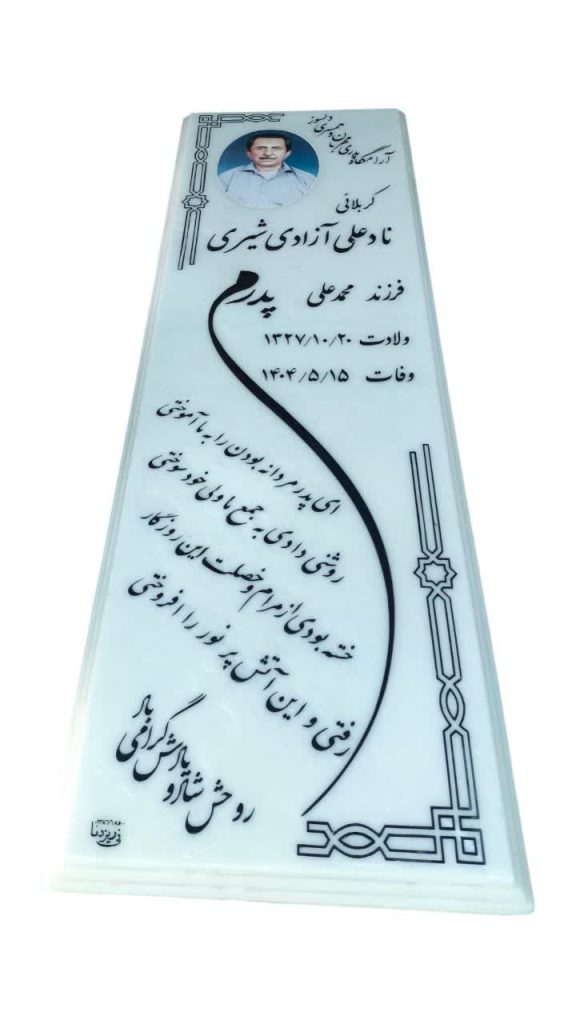 آرامگاه پدری مهربان و همسری دلسوز
کربلائی
نادعلی آزادی شیری
فرزند محمدعلی
پدرم
ولادت ۱۳۲۷/۱۰/۲۰
وفات ۱۴۰۴/۵/۱۵
ای پدر مردانه بودن را به ما آموختی
روشنی دادی به جمع ما ولی خود سوختی
خسته بودی از مرام و خصلت این روزگار
رفتی و این آتش پر نور را افروختی
روحش شاد و یادش گرامی باد